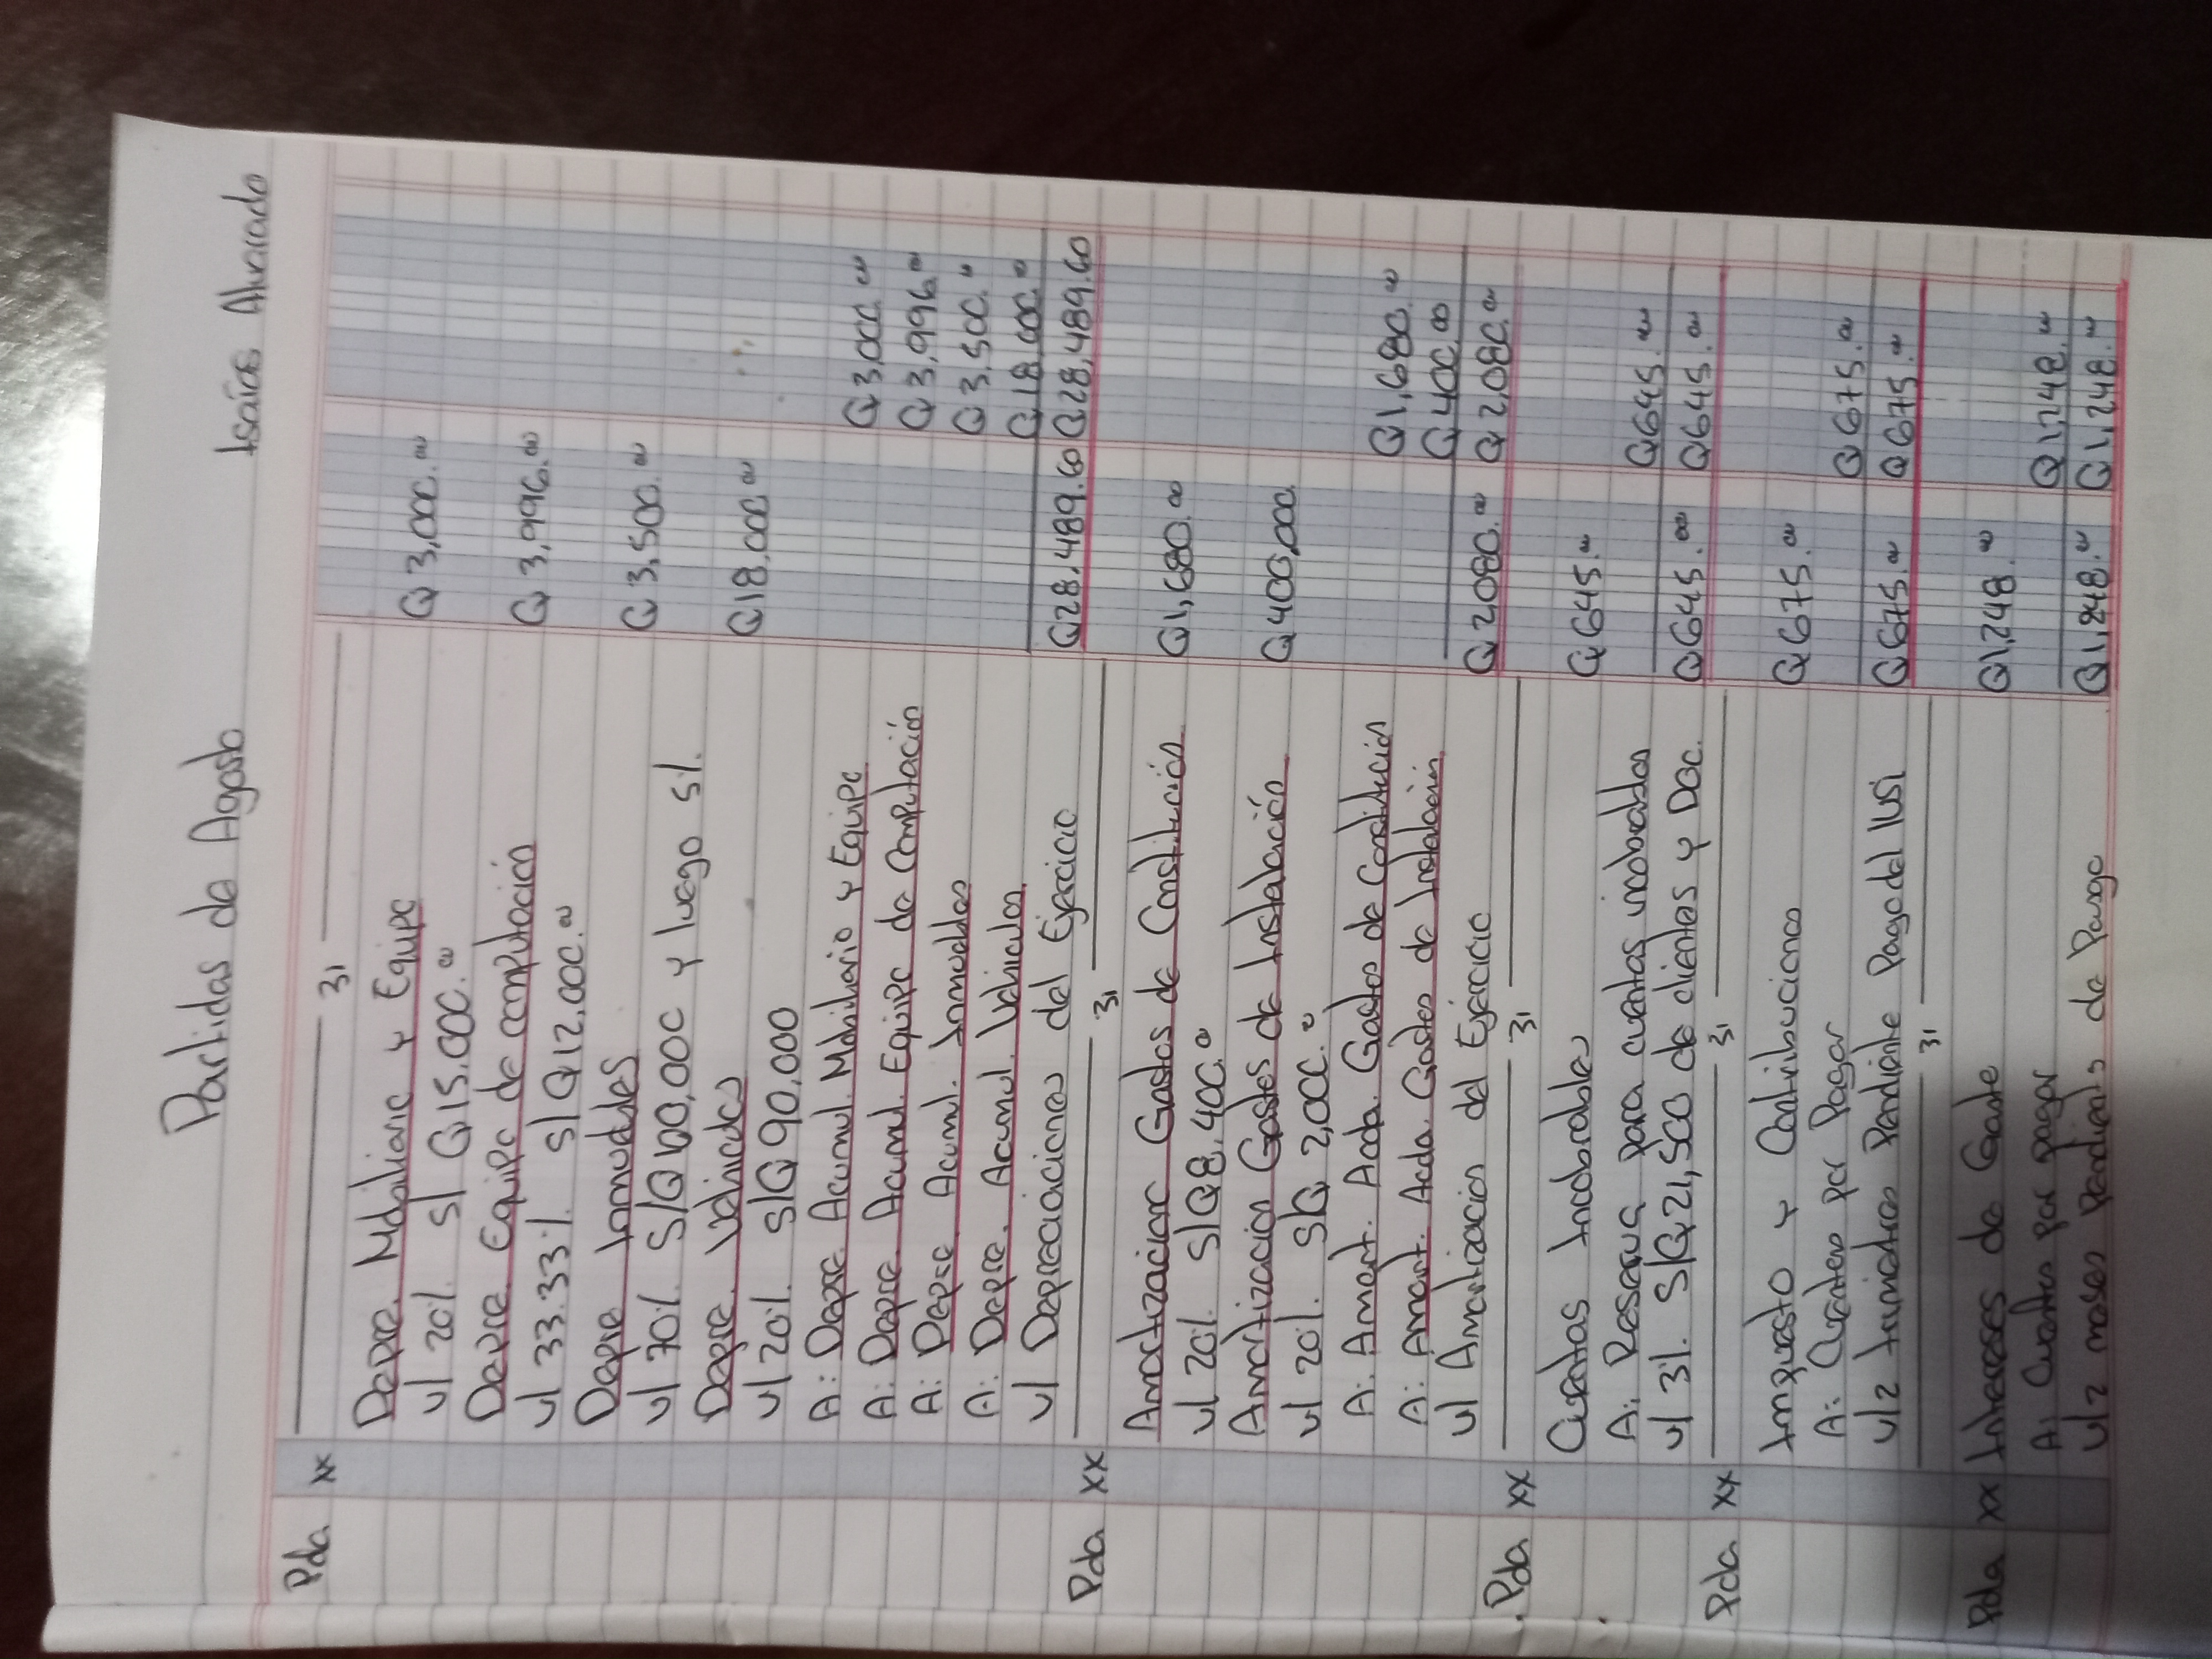 Partidas de Agosto Isaías Alvarado
Pda xx 31
Depre. Mobiliario y Equipo Q 3,000.00
v/ 20% s/ Q 15,000.00
Depre. Equipo de computación Q 3,996.00
v/ 33.33% s/Q 12,000.00
Depre Inmuebles Q 3,500.00
v/ 70% S/Q 100,000 y luego 5%
Depre. Vehiculos Q 18,000.00
v/ 20% s/Q 90,000
A: Depre Acumul. Mobiliario y Equipo Q 3,000.00
A: Depre. Acumul. Equipo de Computación Q 3,996.00
A: Depre Acumul. Inmuebles Q 3,500.00
A: Depre. Acumul. Vehiculos Q 18,000.00
v/ Depreciaciones del Ejercicio Q 28,489.60 Q 28,489.60
Pda xx 31
Amortizacion Gastos de Constitución Q 1,680.00
v/ 20% S/Q 8,400.00
Amortización Gastos de Instalación Q 400,000
v/ 20% S/Q 2,000.00
A: Amort. Acda. Gastos de Constitución Q 1,680.00
A: Amort. Acda Gastos de Instalación Q 400.00
v/ Amortización del Ejercicio Q 2,080.00 Q 2,080.00
Pda xx 31
Cuentas Incobrables Q 645.00
A: Reserva para cuentas incobrables Q 645.00
v/ 3% S/Q 21,500 de clientes y Doc. Q 645.00 Q 645.00
Pda xx 31
Impuesto y Contribuciones Q 675.00
A: Cuentas por Pagar Q 675.00
v/2 trimestres Pendiente Pago del IUSI Q 675.00 Q 675.00
31
Pda xx Intereses de Gasto Q 1,248.00
A: Cuentas por pagar Q 1,248.00
v/ 2 meses pendients de Pago Q 1,248.00 Q 1,248.00